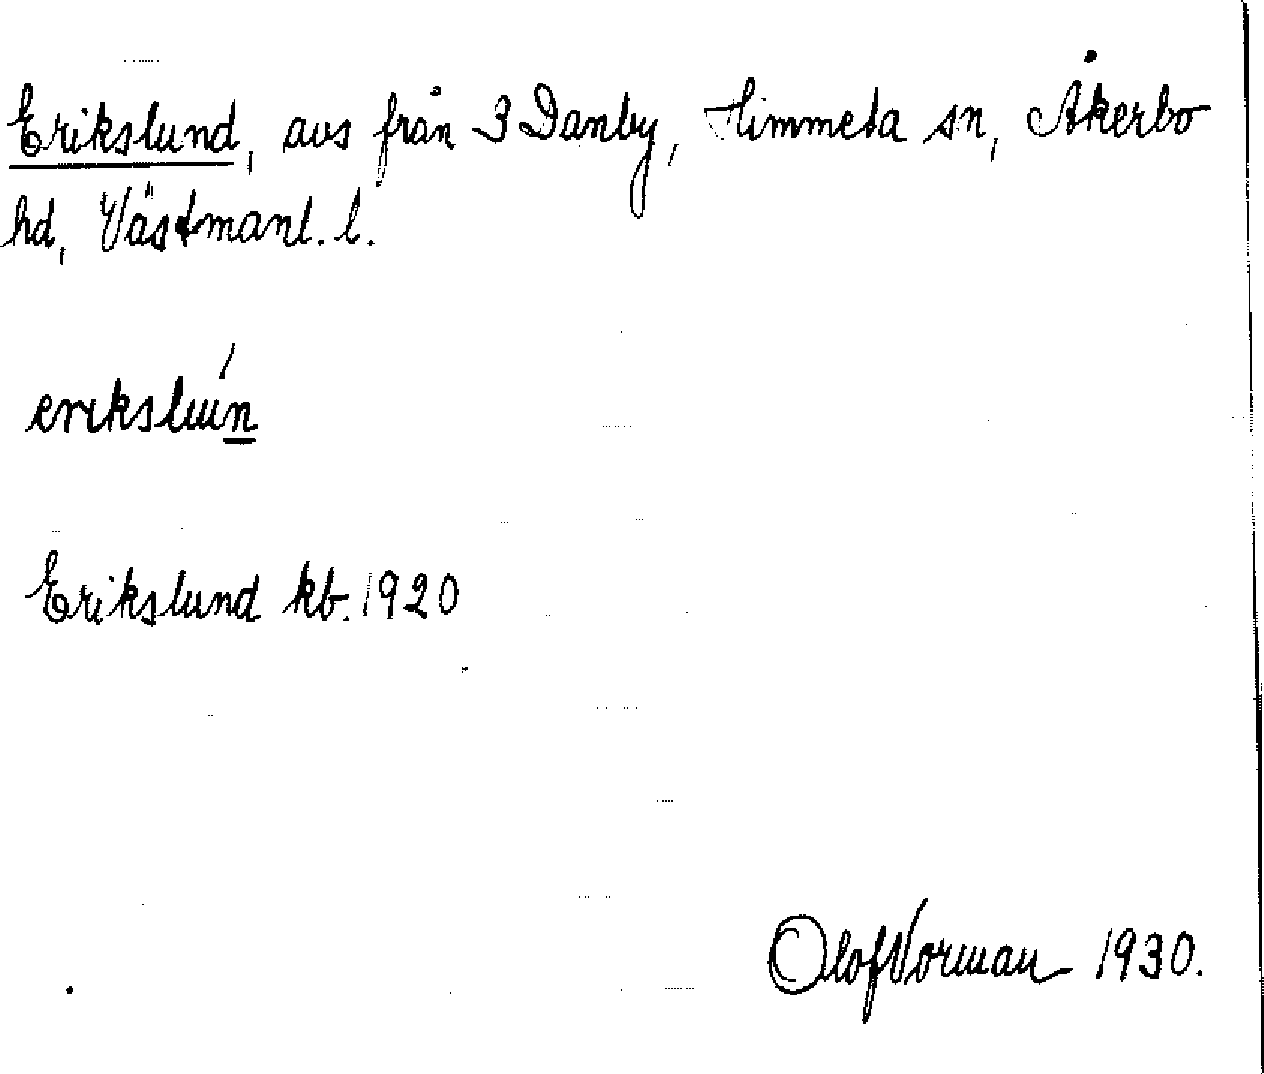 Erikslund, avs från 3 Danby, Himmeta sn, Åkerbo
hd, Västmanl. l.
eriksluǹn
Erikslund kb. 1920
Olof Norman 1930.